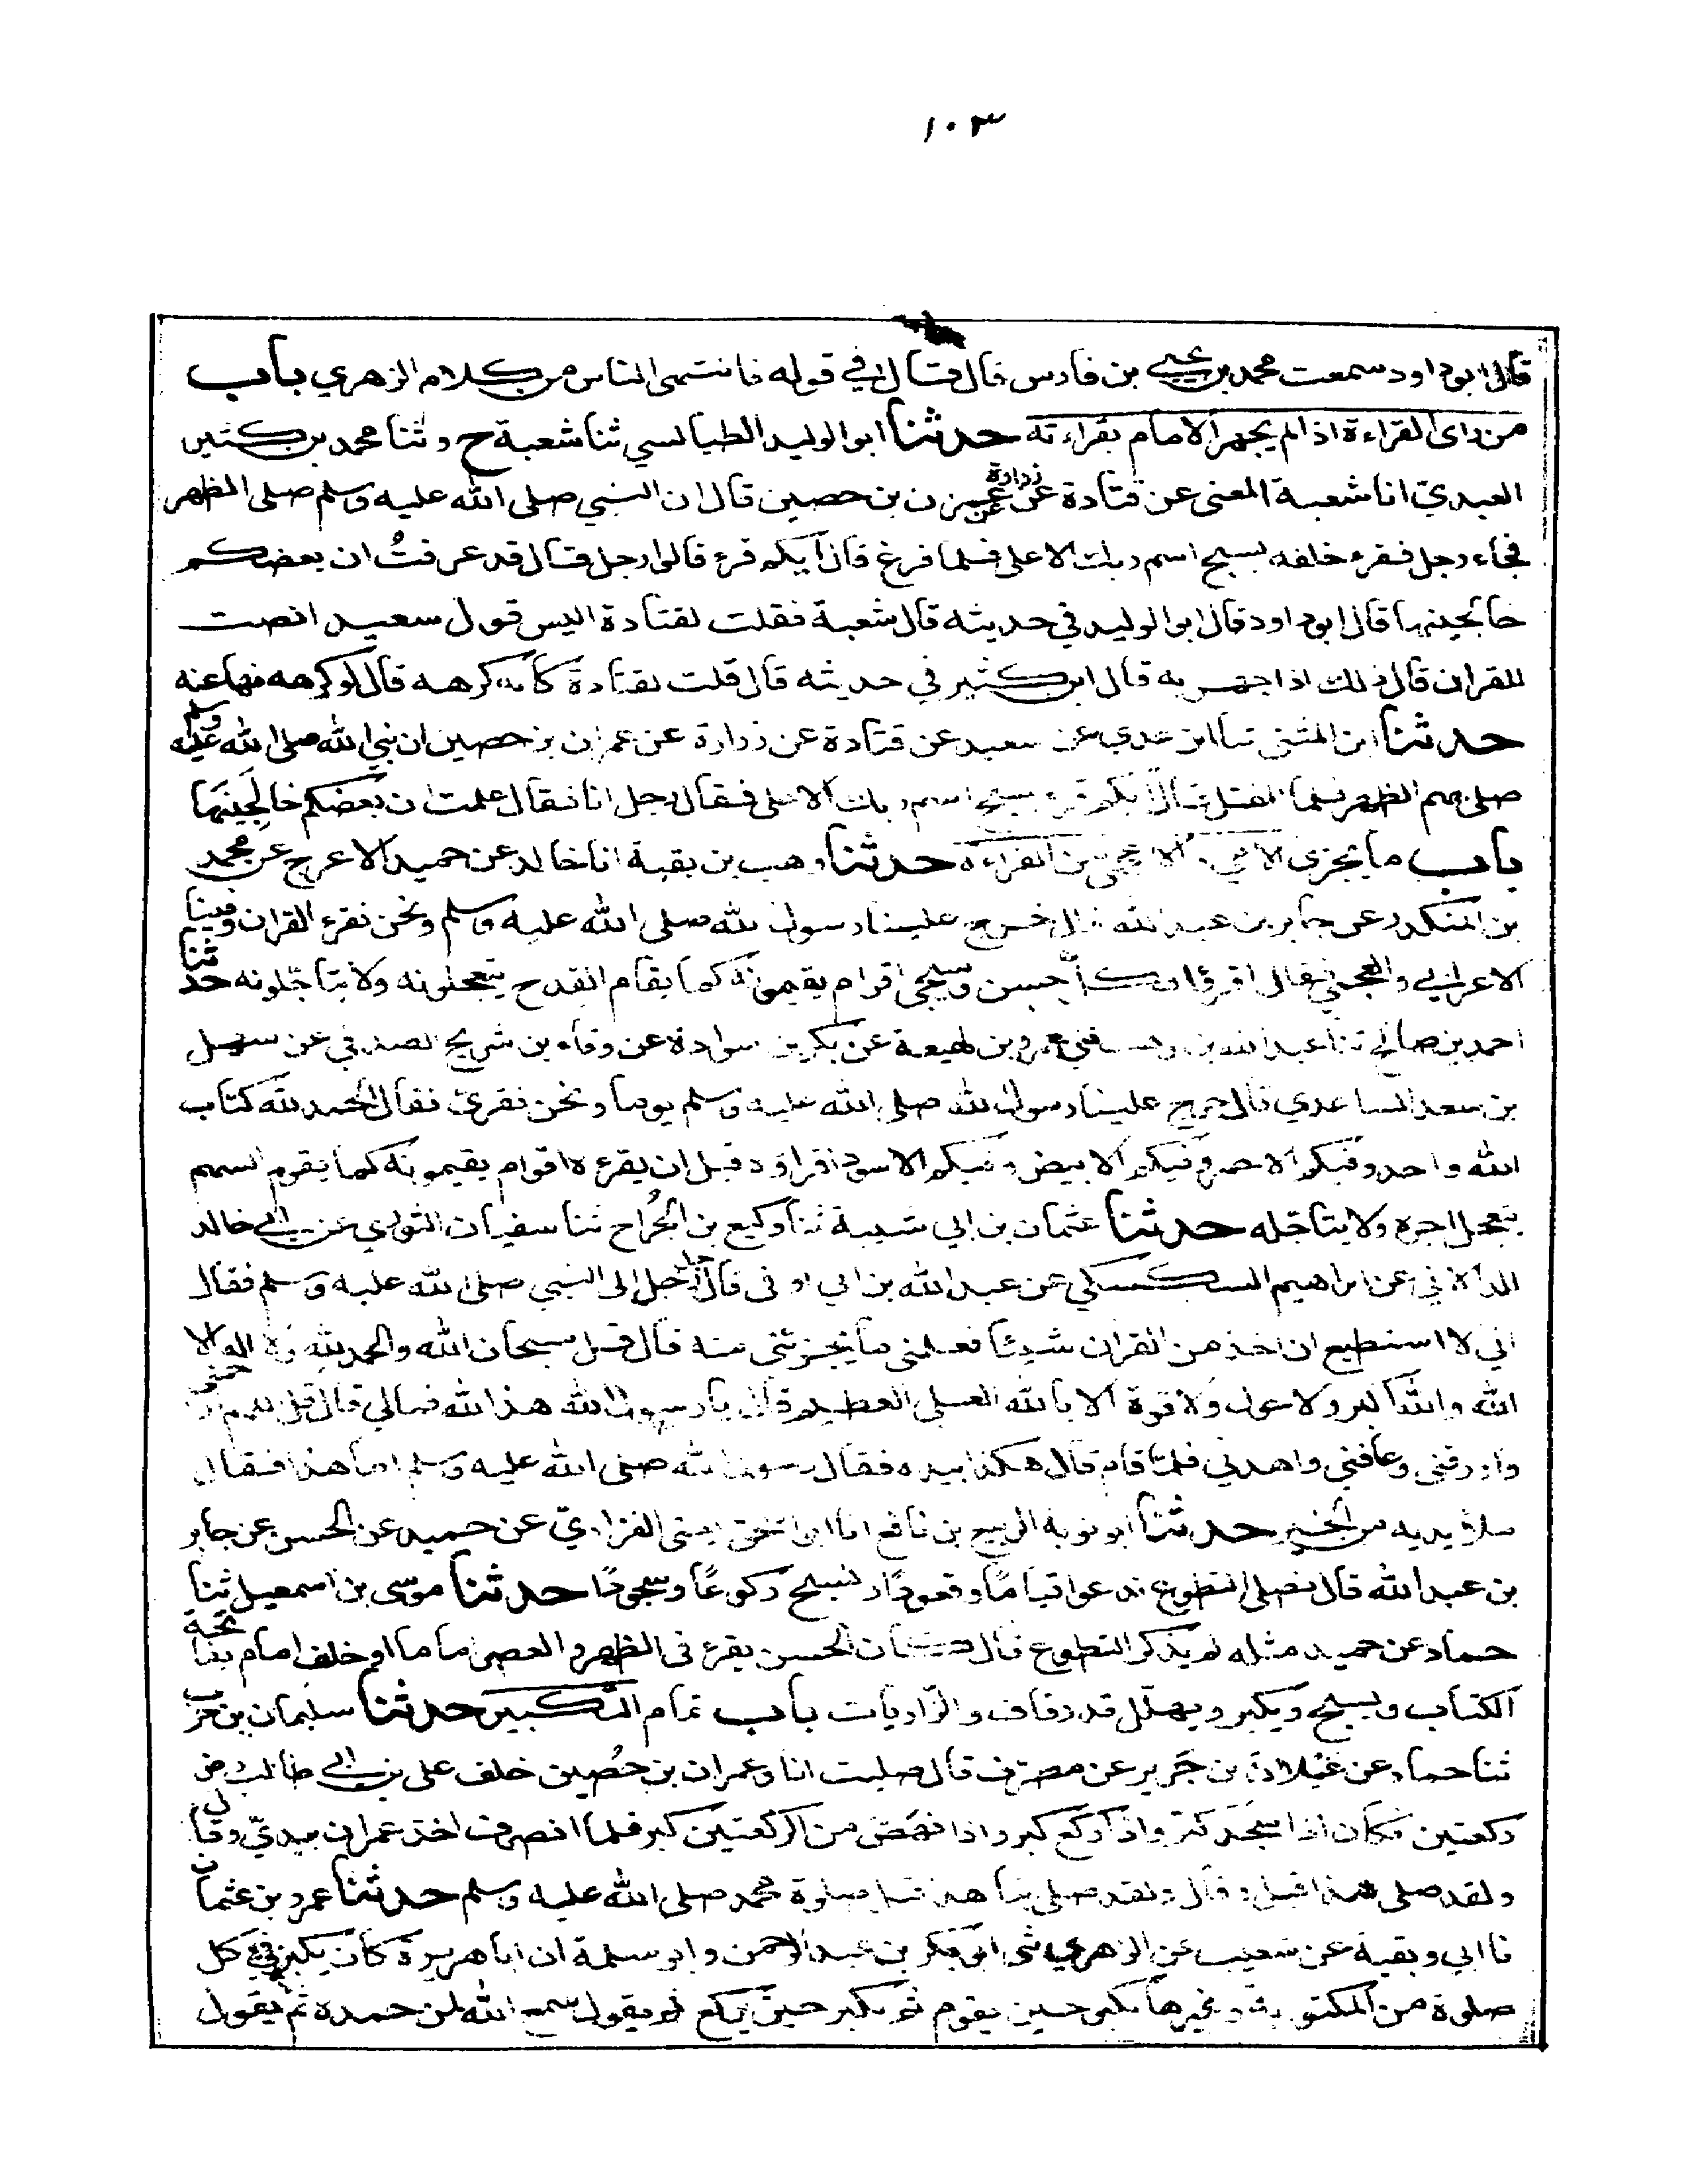 ١٠٣
قال ابوداود سمعت محمد بن يحيى بن فارس قال قال في قوله فانتهى الناس من كلام الزهري باب
من راى القراءة اذا لم يجهر الامام بقراءته حدثنا ابو الوليد الطيالسي ثنا شعبة ح وثنا محمد بن كثير
العبدي انا شعبة المعنى عن قتادة عن زرارة عن عمرن بن حصين قال ان النبي صلى الله عليه وسلم صلى الظهر
فجاء رجل فقرء خلفه بسبح اسم ربك الاعلى فلما فرغ قال ايكم قرء قالوا رجل قال قد عرفتُ ان بعضكم
خالجنيها قال ابوداود قال ابو الوليد في حديثه قال شعبة فقلت لقتادة اليس قول سعيد انصت
للقران قال ذلك اذا جهر به قال ابن كثير في حديثه قال قلت لقتادة كانه كرهه قال لو كرهه نهى عنه
حدثنا ابن المثنى ثنا ابن عدي عن سعيد عن قتادة عن زرارة عن عمران بن حصين ان نبي الله صلى الله عليه وسلم
صلى بهم الظهر فلما انفتل قال ايكم قرء بسبح اسم ربك الاعلى فقال رجل انا فقال علمت ان بعضكم خالجنيها
باب ما يجزى الامي والاعجمي من القراءة حدثنا وهب بن بقية انا خالد عن حميد الاعرج عن محمد
بن المنكدر عن جابر بن عبد الله قال خرج علينا رسول الله صلى الله عليه وسلم ونحن نقرء القران وفينا
الاعرابي والعجمي فقال اقرؤا فكل حسن وسيجئ اقوام يقيمونه كما يقام القدح يتعجلونه ولا يتاجلونه حدثنا
احمد بن صالح ثنا عبد الله بن وهب اخبرني عمرو بن لهيعة عن بكر بن سوادة عن وفاء بن شريح الصدفي عن سهل
بن سعد الساعدي قال خرج علينا رسول الله صلى الله عليه وسلم يوما ونحن نقرئ فقال الحمد لله كتاب
الله واحد وفيكم الاحمر وفيكم الابيض وفيكم الاسود اقراؤه قبل ان يقرءه اقوام يقيمونه كما يقوم السهم
يتعجل اجره ولا يتاجله حدثنا عثمان بن ابي شيبة ثنا وكيع بن الجُراح ثنا سفيان الثوري عن ابي خالد
الدالاني عن ابراهيم السكسكي عن عبد الله بن ابي اوفى قال جاء رجل الى النبي صلى الله عليه وسلم فقال
اني لا استطيع ان اخذ من القران شيئا فعلمني ما يجزئني منه قال قل سبحان الله والحمد لله ولا اله الا
الله والله اكبر ولا حول ولا قوة الا بالله العلي العظيم قال يا رسول الله هذا لله فمالي قال قل اللهم ارحمني
وارزقني وعافني واهدني فلما قام قال هكذا بيده فقال رسول الله صلى الله عليه وسلم اما هذا فقال
ملأ يديه من الخير حدثنا ابو توبه الربيع بن نافع انا ابو اسحق يعنى الفزاري عن حميد عن الحسن عن جابر
بن عبد الله قال نصلي التطوع ندعوا قياما وقعودا ونسبح ركوعًا وسجودًا حدثنا موسى بن اسمعيل ثنا
حماد عن حميد مثله لم يذكر التطوع قال كان الحسن يقرء في الظهر والعصر اماما او خلف امام بفاتحة
الكتاب ويسبح ويكبر ويهلل قدر قاف والذاريات باب تمام التكبير حدثنا سليمان بن حرب
ثنا حماد عن غيلان بن جرير عن مطرف قال صليت انا وعمران بن حُصين خلف على بن ابي طالب رض
ركعتين فكان اذا سجد كبر واذا ركع كبر واذا نهض من الركعتين كبر فلما انصرف اخذ عمران بيديّ وقال
ولقد صلى هذا قبل وقال ولقد صلى بنا هذا قبل صلوة محمد صلى الله عليه وسلم حدثنا عمرو بن عثمان
نا ابي وبقية عن شعيب عن الزهري ثنى ابو بكر بن عبد الرحمن وابو سلمة ان ابا هريرة كان يكبر في كل
صلوة من المكتوبة وغيرها يكبر حين يقوم ثم يكبر حين يركع ثم يقول سمع الله لمن حمده ثم يقول